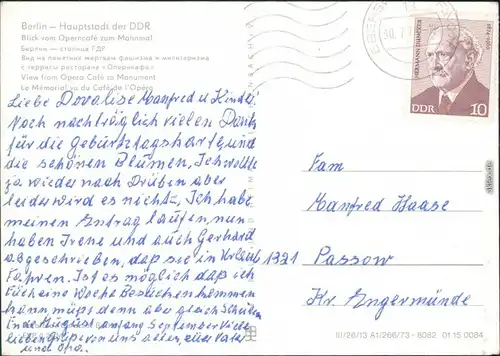 Berlin – Hauptstadt der DDR
Blick vom Operncafé zum Mahnmal
Берлин — столица ГДР
Вид на памятник жертвам фашизма и милитаризма
с террасы ресторана «Опернкафе»
View from Opera Café to Monument
Le Mémorial vu du Café de l'Opéra
Liebe Dovalise Manfred u. Kinder
Noch nachträglich vielen Dank
für die Geburtstagskart und
die schönen Blumen, Ich wollte
ja wieder nach Drüben aber
leider wird es nicht, Ich habe
meinen Antrag laufen, nun
haben Irene und auch Gerhard
abgeschrieben, daß sie in Urlaub
Fahren. Ist es möglich daß ich
Euch eine Woche Besuchen kommen
kann müßt denn aber gleich Schreiben
Ende August anfang September Viele
lieben Grüße von uns allen, euer Vater
und Opa.
HERMANN DUNCKER
1874-1960
DDR 10
Fam
Manfred Haase
1321 Passow
Kr. Angermünde
III/26/13 A1/266/73 - 8082 01 15 0084